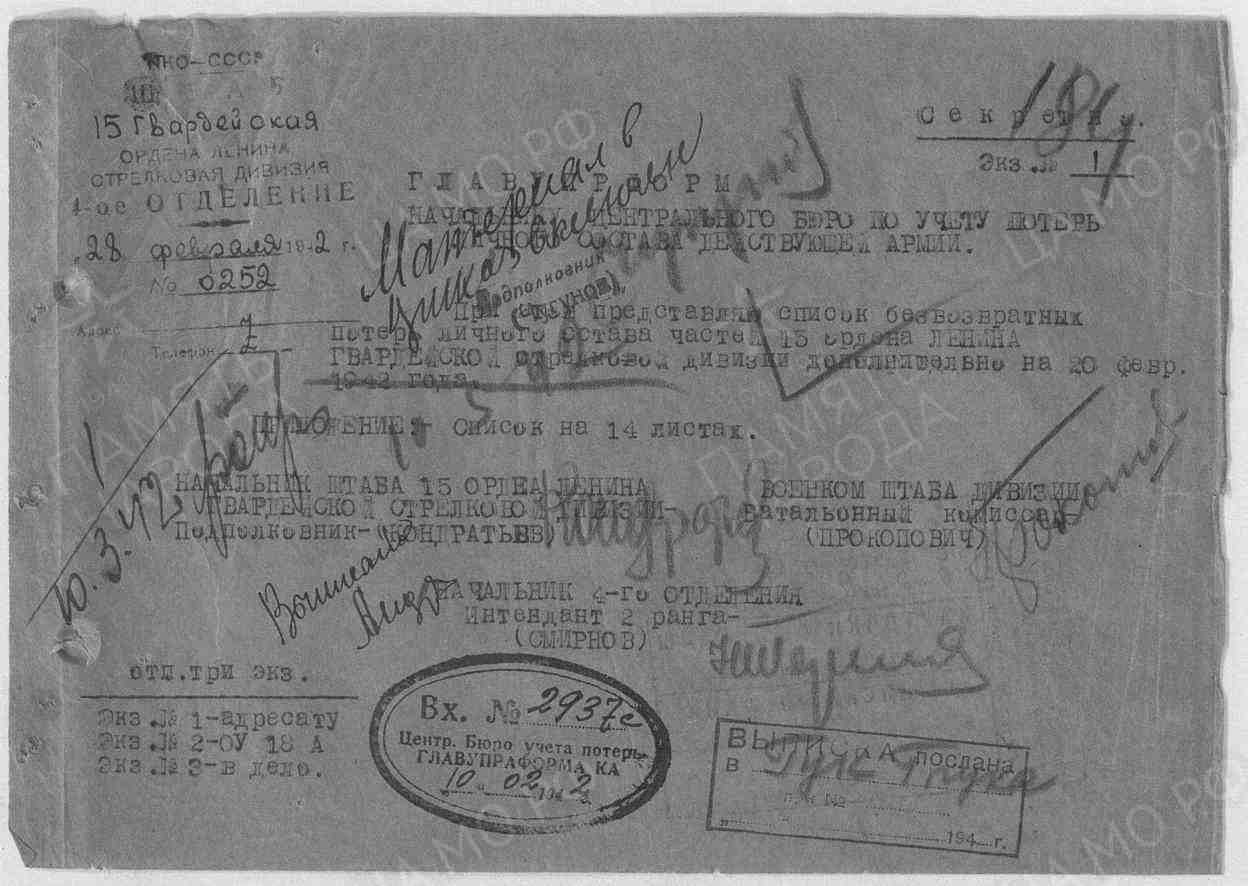 НКО-СССР
15 Гвардейская
ОРДЕНА ЛЕНИНА
СТРЕЛКОВАЯ ДИВИЗИЯ
4-ое ОТДЕЛЕНИЕ
"28 февраля 1942 г.
№ 0252
Адрес
Телефон
Секретно.
Экз.№ 1
НАЧАЛЬНИКУ ЦЕНТРАЛЬНОГО БЮРО ПО УЧЕТУ ПОТЕРЬ
ЛИЧНОГО СОСТАВА ДЕЙСТВУЮЩЕЙ АРМИИ.
Материал в
Подполковник
При сем представляю список безвозвратных
потерь личного состава частей 15 ордена ЛЕНИНА
ГВАРДЕЙСКОЙ стрелковой дивизии дополнительно на 20 февр.
1942 года.
ПРИЛОЖЕНИЕ:- Список на 14 листах.
10.3.42
НАЧАЛЬНИК ШТАБА 15 ОРДЕА ЛЕНИНА
ГВАРДЕЙСКОЙ СТРЕЛКОВОЙ ДИВИЗИИ-
Подполковник- (КОНДРАТЬЕВ)
ВОЕНКОМ ШТАБА ДИВИЗИИ
Батальонный комиссар-
(ПРОКОПОВИЧ)
НАЧАЛЬНИК 4-го ОТДЕЛЕНИЯ
Интендант 2 ранга-
(СМИРНОВ)
отп.три экз.
Экз.№ 1-адресату
Экз.№ 2-ОУ 18 А
Экз.№ 3-в дело.
Вх. № 2937с
Центр. Бюро учета потерь
ГЛАВУПРАФОРМА КА
10 02 1942
ВЫПИСКА послана
В
№
194 г.
ЦАМО РФ
ПАМЯТЬ
НАРОДА